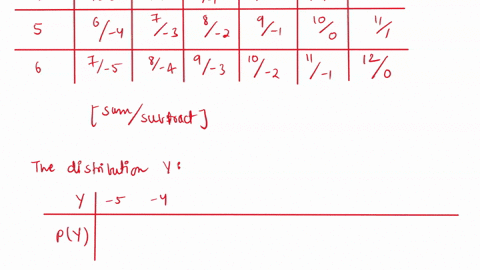 5 6/-4 7/-3 8/-2 9/-1 10/0 11/1
6 7/-5 8/-4 9/-3 10/-2 11/-1 12/0
[sum/subtract]
The distribution Y:
Y -5 -4
P(Y)